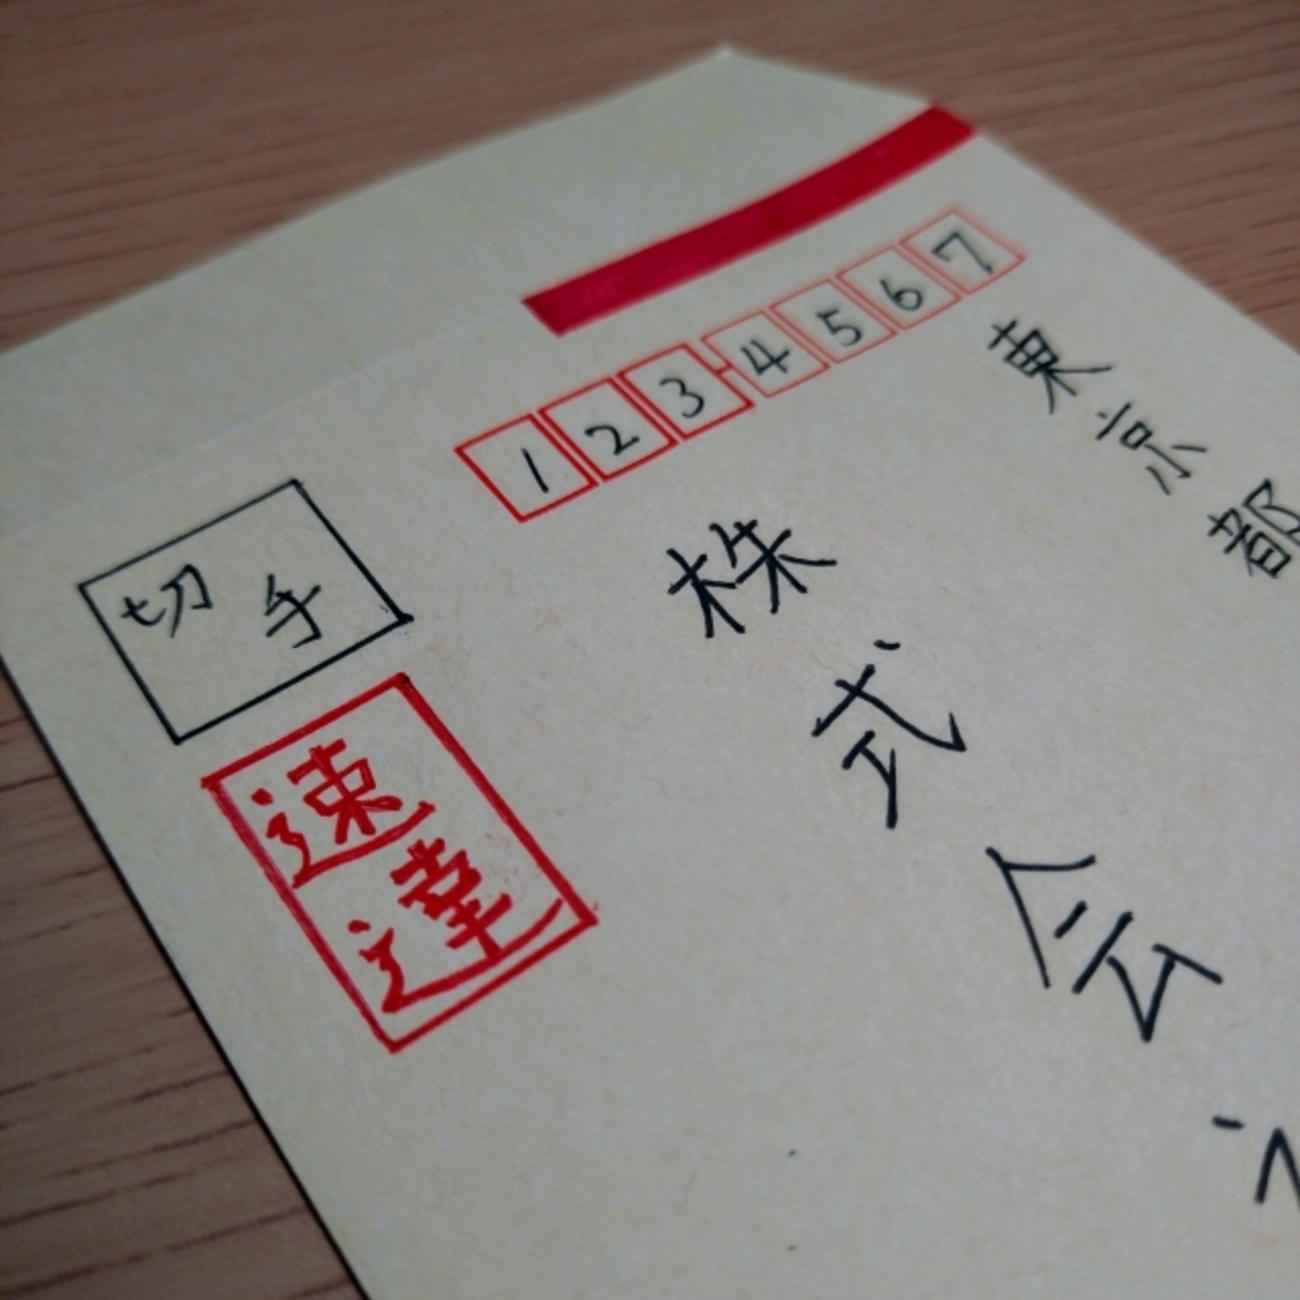 1234567
東京都
株式会
切手
速達